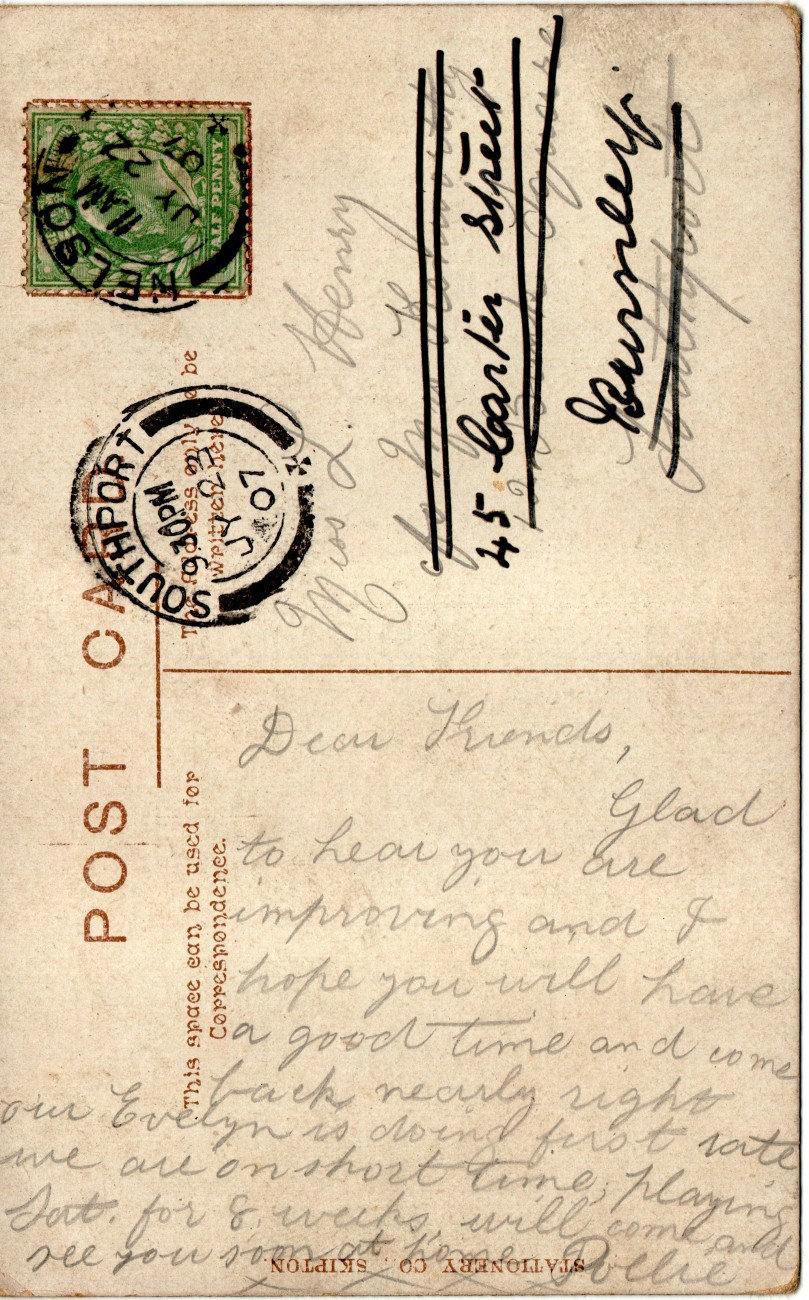 POST CARD
This space can be used for
Correspondence.
The Address only to be
written here
HALF PENNY
NELSON
11 AM
JY 22
07
SOUTHPORT
9 30PM
JY 23
07
Miss L Henry
45 Carter Street
Burnley
Southport
Dear Friends,
Glad
to hear you are
improving and I
hope you will have
a good time and come
back nearly right
our Evelyn is doing first rate
we are on short time, playing
Sat. for 8 weeks, will come and
see you soon at home Pollie
STATIONERY CO, SKIPTON